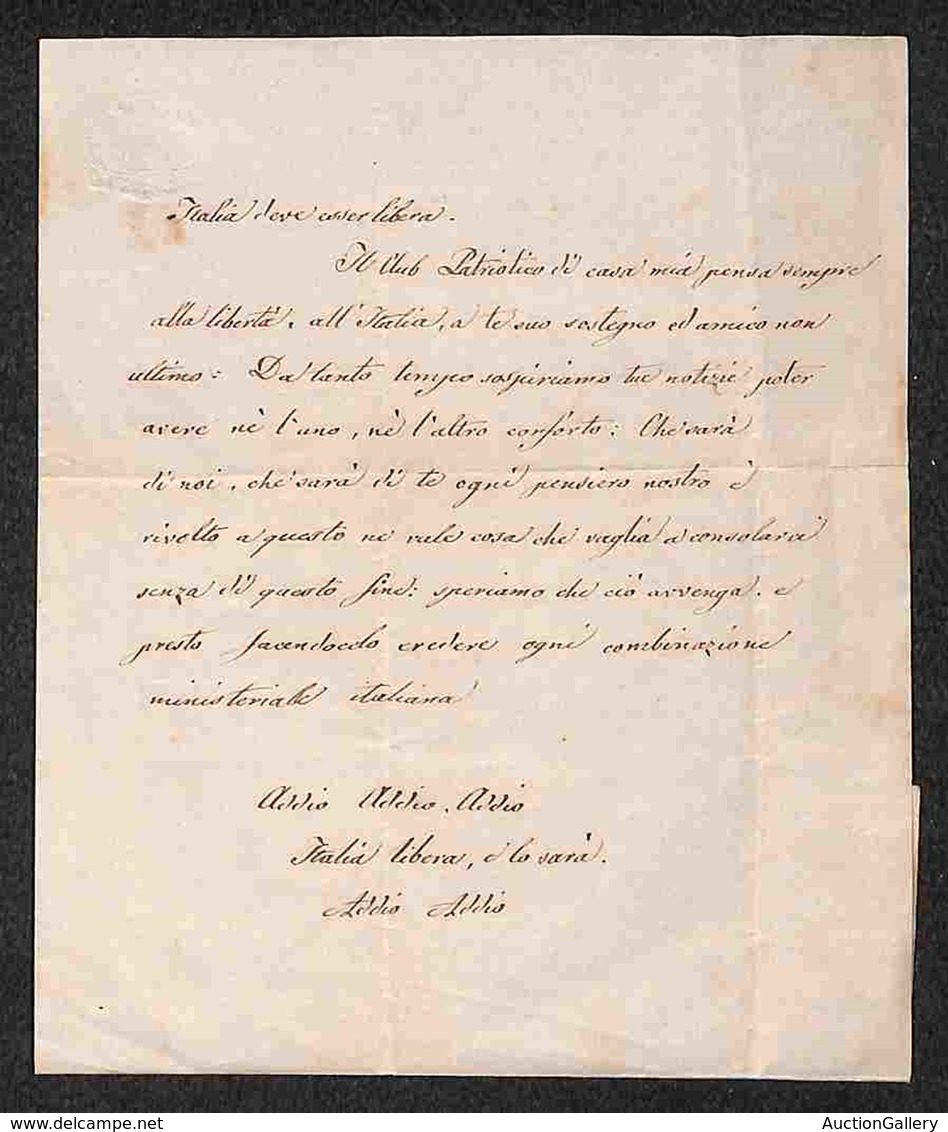 Italia deve esser libera.
Il Club Patriotico di casa mia pensa sempre
alla libertà, all'Italia, a te suo sostegno ed amico non
ultimo: Da tanto tempo sospiriamo tue notizie poter
avere nè l'uno, nè l'altro conforto: Che sarà
di noi, che sarà di te ogni pensiero nostro è
rivolto a questo ne vale cosa che vaglia a consolarci
senza di questo fine: speriamo che ciò avvenga. e
presto facendocelo credere ogni combinazione
ministeriale italiana
Addio Addio, Addio
Italia libera, e lo sarà.
Addio Addio
AuctionGallery